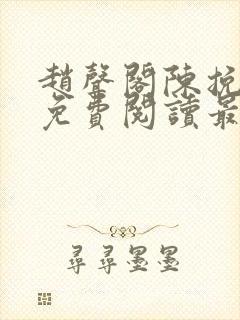 趙聲閣陳挽
免費閱讀最
尋尋墨墨